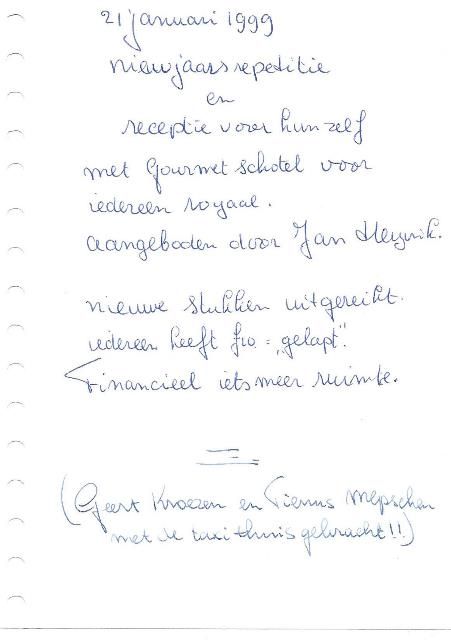 21 januari 1999
nieuwjaarsrepetitie
en
receptie voor hun zelf
met Gourmet schotel voor
iedereen royaal.
aangeboden door Jan
nieuwe stukken uitgereikt.
iedereen heeft f10.= „gelapt".
Financieel iets meer ruimte.
(Geert Kroezen en Tienus Mepschen
met de taxi thuis gebracht!!)